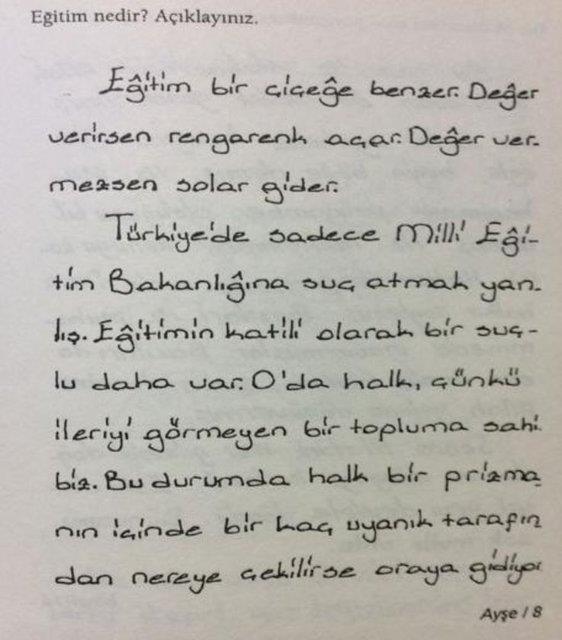 Eğitim nedir? Açıklayınız.
Eğitim bir çiçeğe benzer. Değer
verirsen rengarenk açar. Değer ver-
mezsen solar gider.
Türkiye'de sadece Milli Eği-
tim Bakanlığına suç atmak yan-
lış. Eğitimin katili olarak bir suç-
lu daha var. O'da halk, çünkü
ileriyi görmeyen bir topluma sahi
biz. Bu durumda halk bir prizma
nın içinde bir kaç uyanık tarafın
dan nereye çekilirse oraya gidiyor
Ayşe / 8